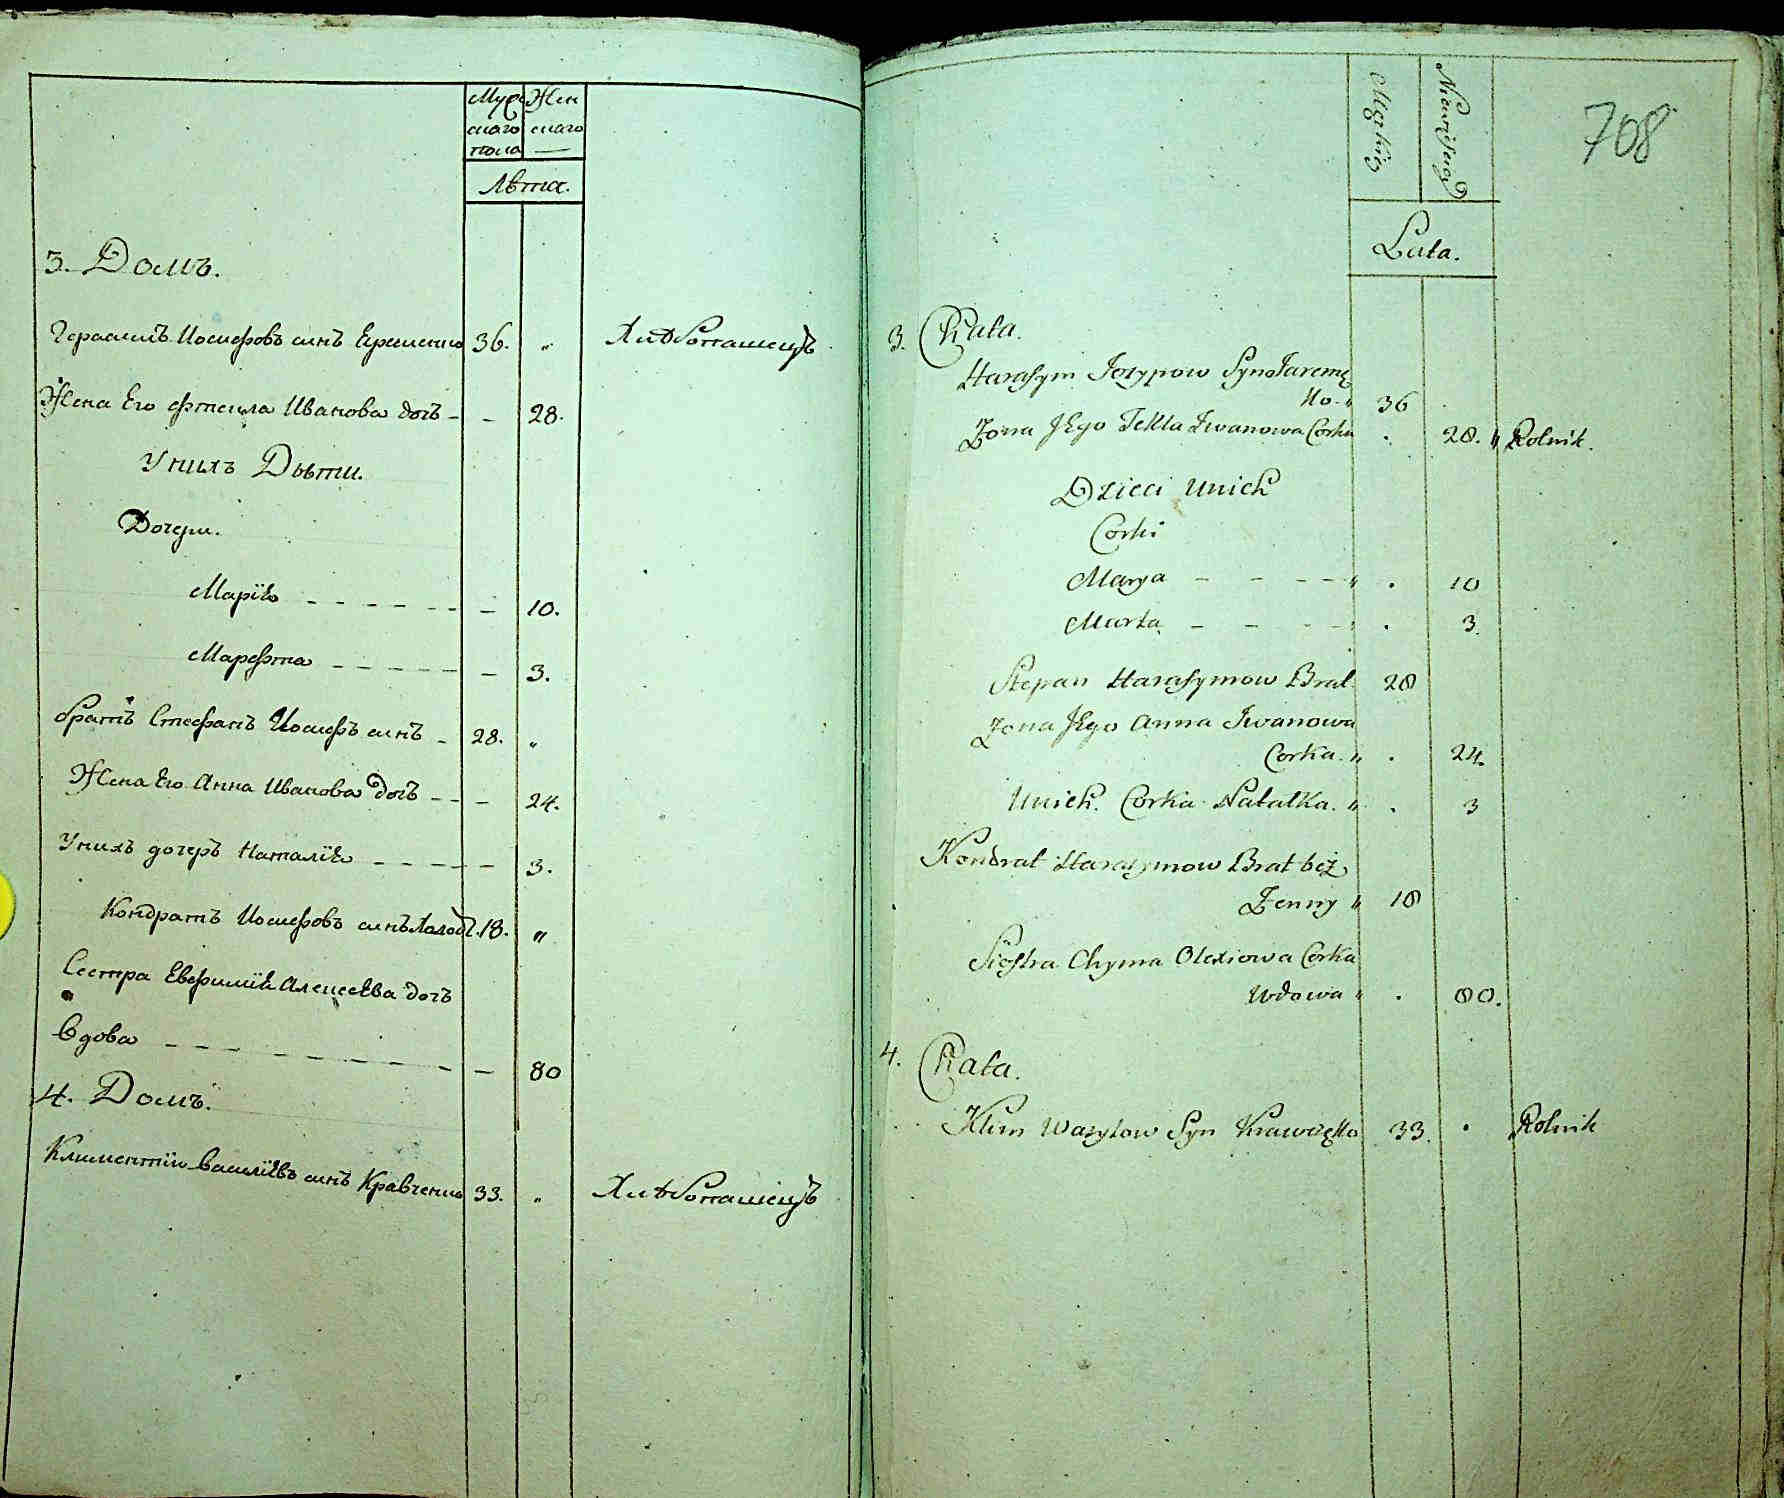 Муж Жен
скаго скаго
пола
Лѣта.
3. Домъ.
Герасимъ Иосифовъ синъ Еременко 36. "  Хлѣбопашецъ
Жена Его Фтекла Иванова дочъ - - 28.
У нихъ Дѣти.
Дочери.
Марія - - - - - - - 10.
Марфта - - - - - - 3.
братъ Стефанъ Иосифъ синъ - 28. "
Жена Его Анна Иванова дочъ - - - 24.
У нихъ дочеръ Наталія - - - - - 3.
Кондратъ Иосифовъ синъ 18. "
Сестра Евфимія Алексеева дочъ
Вдова - - - - - - - - - 80
4. Домъ.
Климентіи Василіевъ синъ Кравченко 33. " Хлѣбопашецъ
708
Męzkiey Niewiscey
Lata.
3. Chata.
Harasym Jozypow Syn Jaremę
ko " 36
Zona JEgo Tekla Iwanowa Corka . 28. " Rolnik.
Dzieci Unich
Corki
Marya - - - - " . 10
Marta - - - - . 3.
Stepan Harasymow Brat 28
Zona JEgo Anna Iwanowa
Corka. " . 24.
Unich. Corka Natalka. " . 3
Kondrat Harasymow Brat beż
Żenny " 18
Siostra Chyma Olexiowa Corka
Wdowa " . 80.
4. Chata.
Klim Wasylow Syn Krawczęko 33. . Rolnik